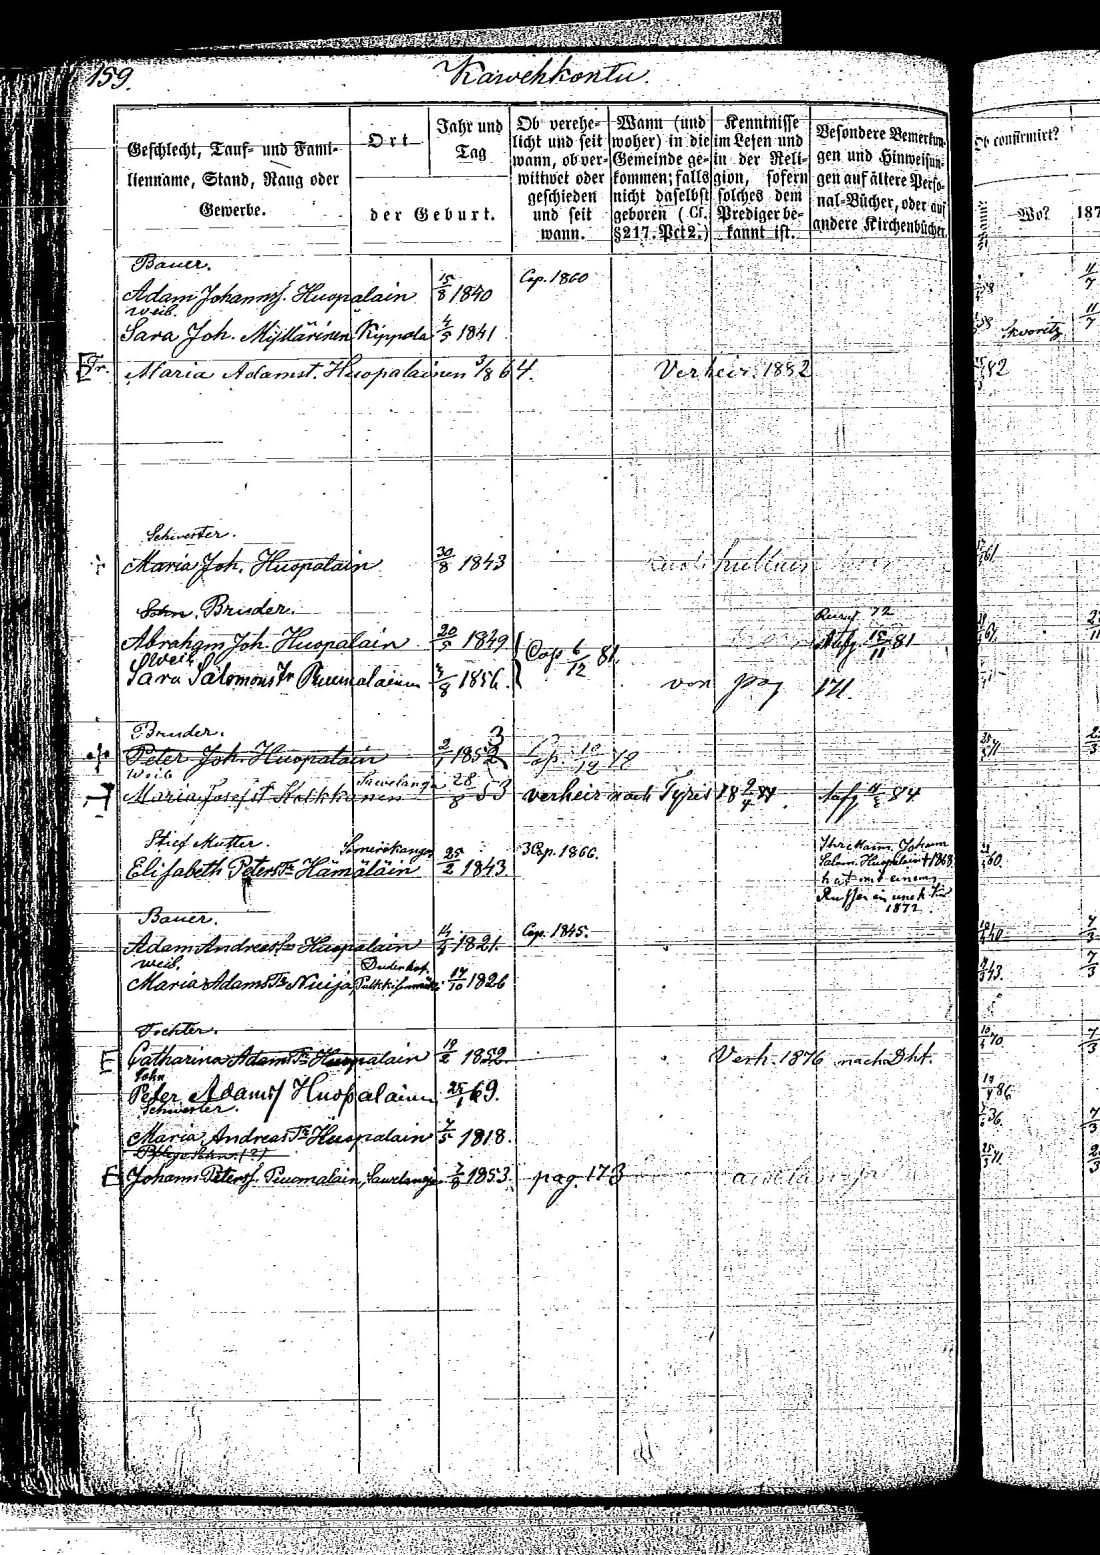 159.
Kawehkontu.
Geschlecht, Tauf- und Fami-
lienname, Stand, Rang oder
Gewerbe.
Ort
Jahr und
Tag
der Geburt.
Ob verehe-
licht und seit
wann, ob ver-
wittwet oder
geschieden
und seit
wann.
Wann (und
woher) in die
Gemeinde ge-
kommen; falls
nicht daselbst
geboren (Cf.
§217. Pct 2.)
Kenntnisse
im Lesen und
in der Reli-
gion, sofern
solches dem
Prediger be-
kannt ist.
Besondere Bemerkun-
gen und Hinweisun-
gen auf ältere Perso-
nal-Bücher, oder auf
andere Kirchenbücher.
Ob confirmirt?
Wann?
Wo?
187
Bauer.
Adam Johannsf. Huopalain 15/8 1840 Cop. 1860
Weib.
Sara Joh. Myllärinen Kippola 4/5 1841
Skworitz
Fr. Maria Adamst. Huopalainen 3/8 64. Verheir. 1882
82
Schwester.
Maria Joh. Huopalain 30/8 1843
61
Sohn. Bruder.
Abraham Joh. Huopalain 20/5 1849 Cop 6/12 81. Aufg. 15/11 81
Weib
Sara Salomonstr Puumalainen 3/8 1856. von pag 171
Bruder.
Peter Joh. Huopalain 2/1 1852 3 Cop. 10/12 78
Weib
Maria Josefst Kolkkonen 28/8 53 verheir nach Tyris 18 2/4 84. Aufg 11/2 84
Stief Mutter.
Elisabeth Peterstr Hämäläin 25/2 1843 3 Cop. 1866.
Johann
Salom. Huopalain + 1868
hat mit einem
Russen ein unehl. Kin
1872.
60
Bauer.
Adam Andreassn Huopalain 1821. Cop. 1845.
Weib.
Duderhof.
Maria Adamstr Nuija, 14/10 1826
43
Tochter.
E Catharina Adamstr Huopalain 1852. Verh. 1876 nach Dht.
70
Sohn
Peter Adamsf Huopalainen 25/1 69.
86
Schwester.
Maria Andreastr Huopalain 7/5 1818.
36
E Johann Petersf. Puumalain, 7/8 1853. pag. 173
71